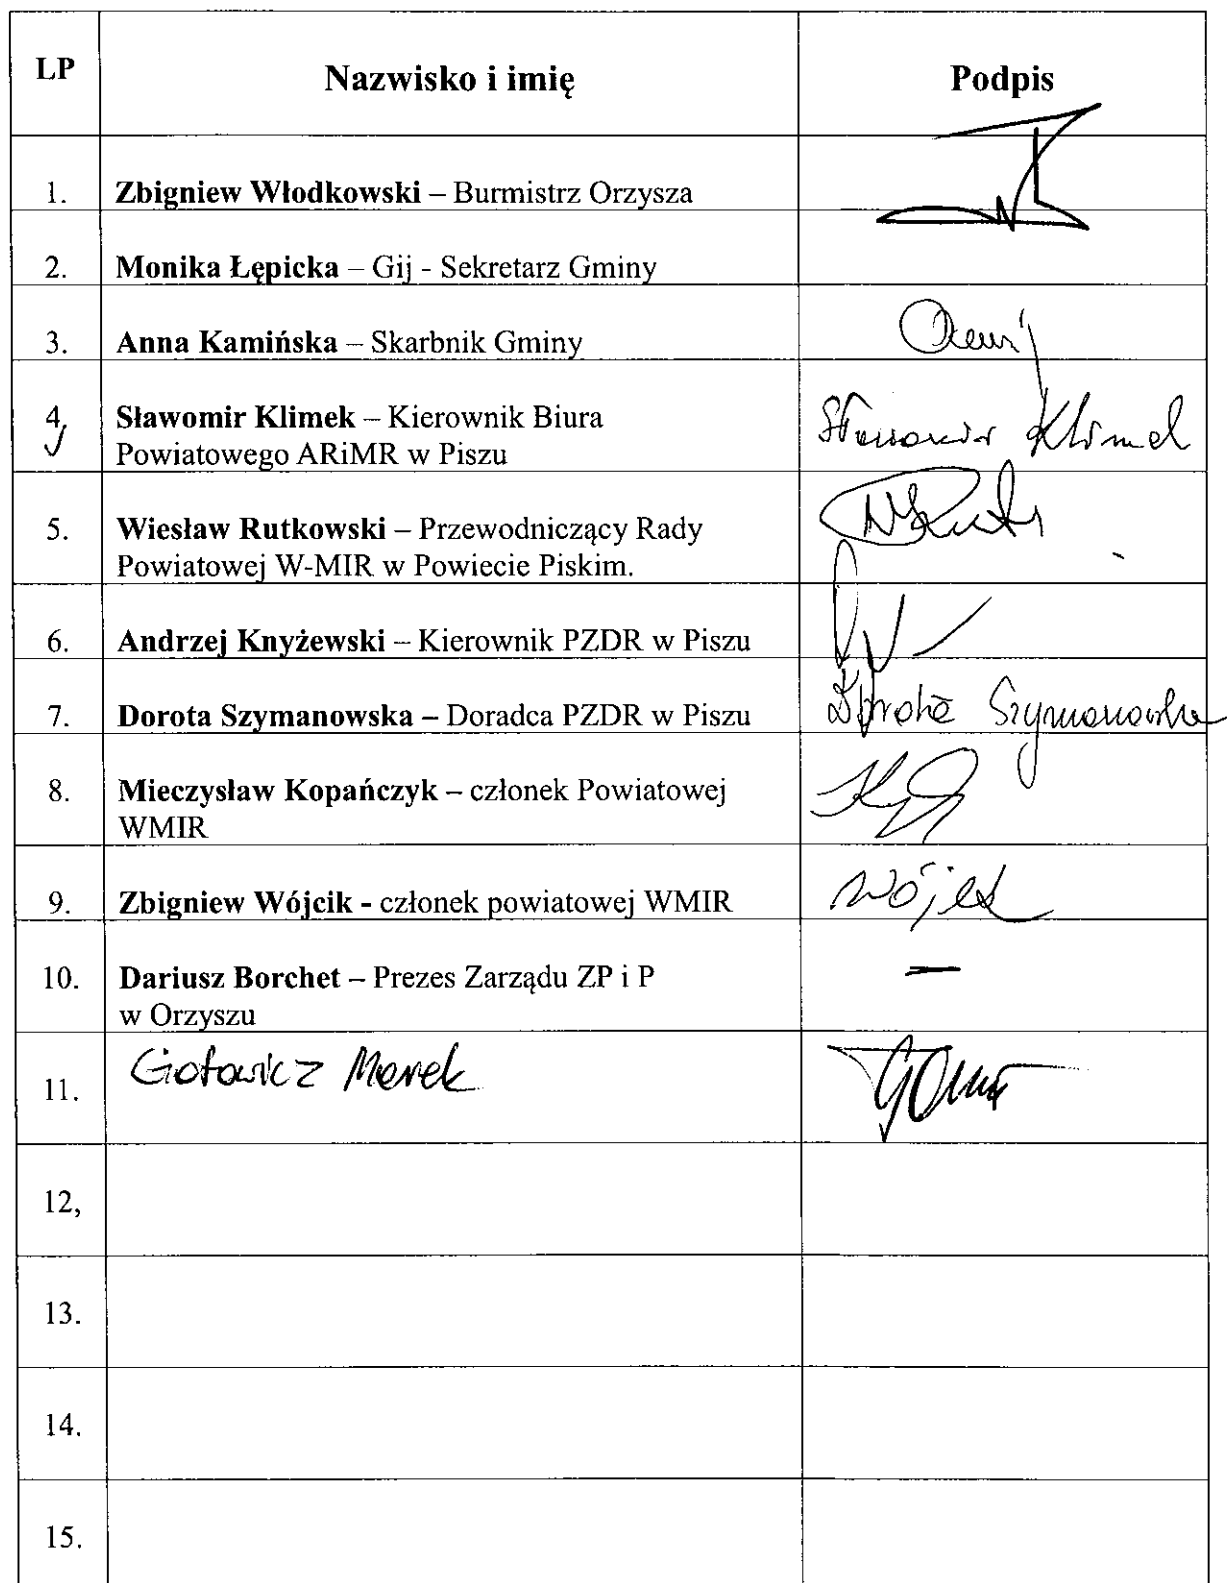 LP Nazwisko i imię Podpis
1. Zbigniew Włodkowski – Burmistrz Orzysza
2. Monika Łępicka – Gij - Sekretarz Gminy
3. Anna Kamińska – Skarbnik Gminy
4, Sławomir Klimek – Kierownik Biura
Powiatowego ARiMR w Piszu
Sławomir Klimek
5. Wiesław Rutkowski – Przewodniczący Rady
Powiatowej W-MIR w Powiecie Piskim.
6. Andrzej Knyżewski – Kierownik PZDR w Piszu
7. Dorota Szymanowska – Doradca PZDR w Piszu Dorota Szymanowska
8. Mieczysław Kopańczyk – członek Powiatowej
WMIR
9. Zbigniew Wójcik - członek powiatowej WMIR
10. Dariusz Borchet – Prezes Zarządu ZP i P –
w Orzyszu
11. Gotowicz Marek
12,
13.
14.
15.